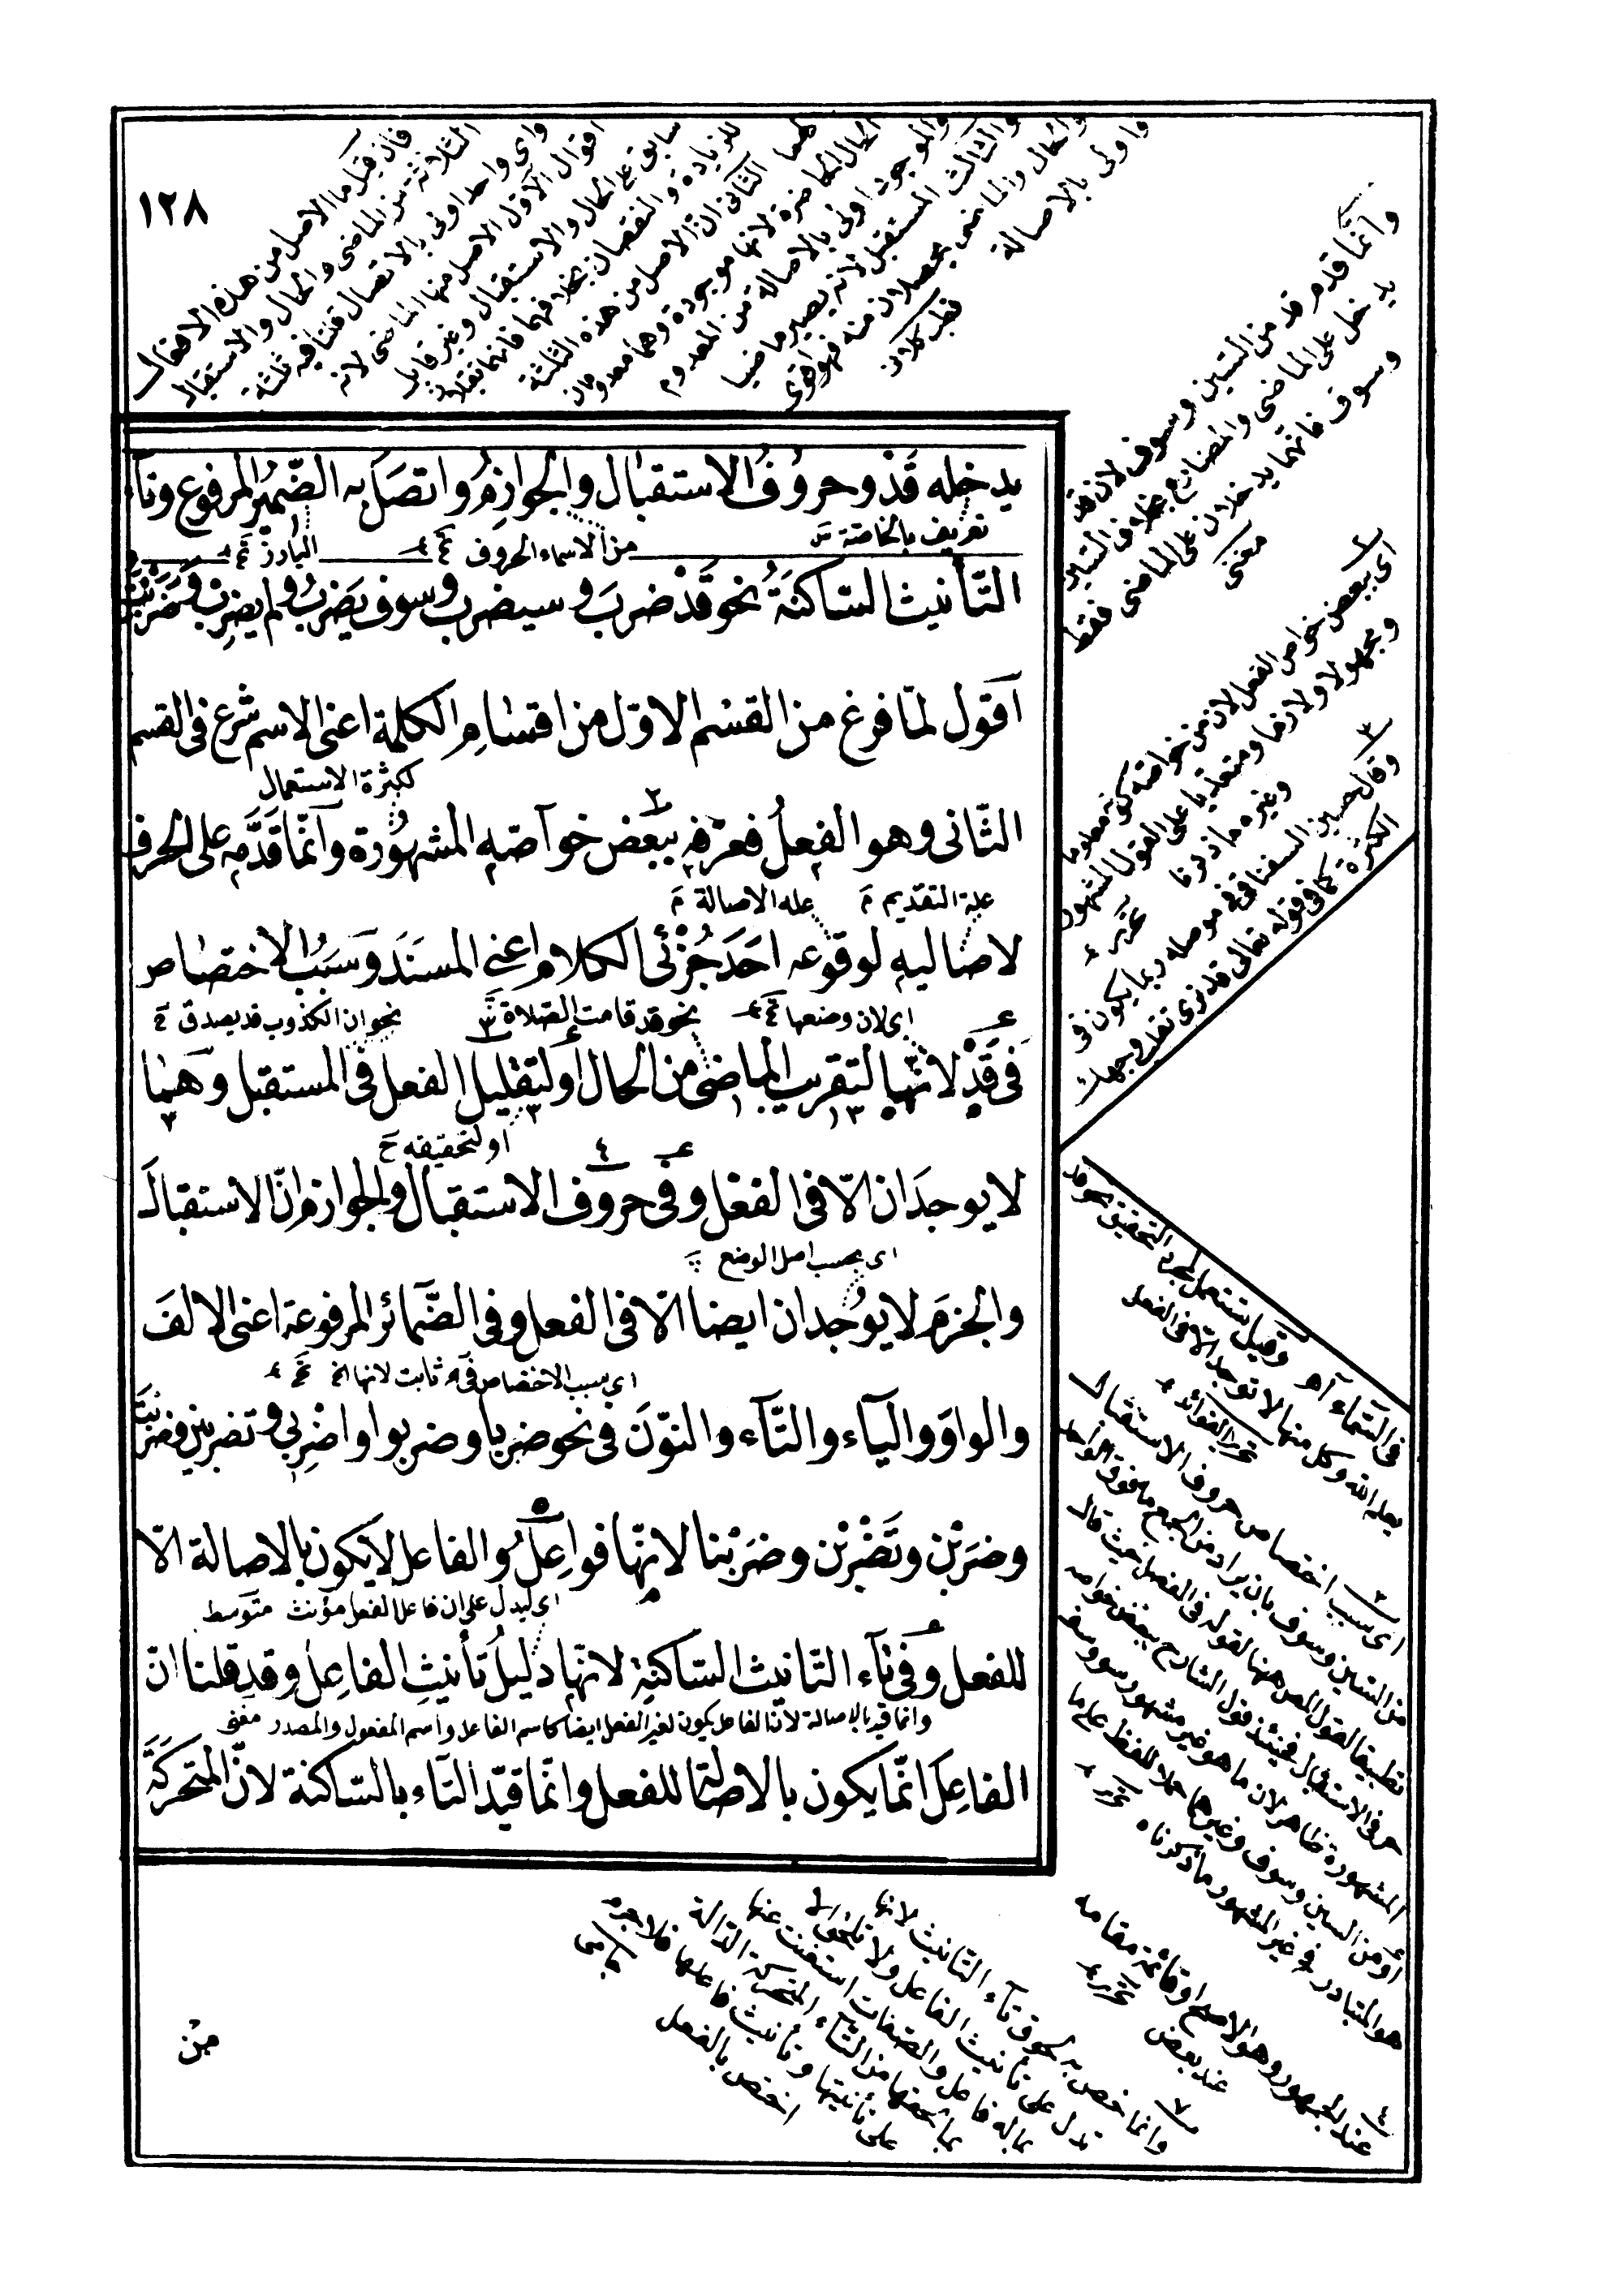 ١٢٨
فان قيل ما الاصل من هذه الافعال
الثلاثة من الماضى والحال والاستقبال
واى واحد اولى بالاتصال قلنا فيه ثلثة
اقوال الاول الاصل منها الماضى لانه
سابق على الحال والاستقبال وغير قابل
للزيادة والنقصان بخلافهما فانهما يقبلان
لهما الثانى ان الاصل من هذه الثلثة
الحال الحاضرة لانها موجودة وهما معدومان
والموجود اولى بالاصالة من المعدوم
والثالث المستقبل لانه يصير ماضيا
والحال والماضى يحصلان منه فهو اقوى
واولى بالاصالة
وانما قدم قد من السين وسوف لان قد
يدخل على الماضى والمضارع بخلاف السين
وسوف فانهما يدخلان على الماضى فقط
مغنى
يدخله قَدْ وحروفُ الاستقبال والجوازمُ واتصَلَ به الضّميرُ المرفوع وتآء
تعريف بالخاصة
من الاسماء الحروف
البارز
التّأنيث السّاكنَةُ نحو قَدْ ضربَ و سيضرب وسوف يَضربُ ولم يضرِب وضَربَتْ
اَقول لمّا فرغ من القسْم الاوّل من اقسٰامِ الكلمة اعنى الاسم شرَع فى القسم
لكثرة الاستعمال
الثّانى وهو الفِعلُ فعرّفهِ ببَعض خوآصّهِ المشهوُرة وآنّما قَدَّمهِ على الحرف
علة التقديم م
عله الاصالة م
لاصاليهِ لوقوعهِ احَدَ جُزْئَى الكلام اعنى المسنَدَ وَسَبَبُ الاختصاص
اى لان وضعها
نحو قد قامت الصلاة
نحو ان الكذوب قد يصدق
فى قَدْ لانّها لتقريب الماضى من الحال اَو لتقليل الفعل فى المستقبل وهمٰا
او لتحقيقه
لا يوجدَان الاّ فى الفعْل وفى حروف الاستقبال والجوازم انّ الاستقبالَ
اى بحسب اصل الوضع
والجزمَ لا يوُجدان ايضا الاّ فى الفعل وفى الضّمائر المرفوعة اعنى الالفَ
اى سبب الاختصاص فى ثابت لانها الخ
والواوَ والياء والتّآء والنوّنَ فى نحو ضربا وضربوا واضربى وتضربين وضربَتْ
وضرَبْن وتَضْربْن وضرَبْنا لانّها فواعِلُ والفاعل لا يكون بالاصالة الاّ
اى ليدل على ان فاعل الفعل مؤنث متوسط
للفعل وفى تآء التّانيث السّاكنةِ لانّها دليلُ تأنيثِ الفاعِل وقد قلنا انّ
وانما قيد بالاصالة لان الفاعل يكون لغير الفعل ايضا كاسم الفاعل واسم المفعول والمصدر مغنى
الفاعِلَ انّما يكون بالاصالة للفعل وانّما قيّد التاء بالسّاكنة لانّ المتحركَةَ
اى ببعض خواص الفعل لان من خواصه كونه معلوما
ومجهولا ولازما ومتعديا على القول المشهور
وغيره ما ذكرنا
٣
وقال حسين السغناقى فى موصله ربما يكون فى
الكثرة كما فى قوله تعالى قد نرى تقلب وجهك
فى السّماء اه وقيل استعمل لمجرد التحقيق نحو قد
يعلم الله وكل منها لا توجد الا فى الفعل
اى سبب اختصاص حروف الاستقبال
من السين وسوف بان يراد من الجمع ما فوق الواحد
تطبيقا لقول المص ههنا لقوله فى الفصل حيث قال
حرفى الاستقبال فحينئذ قول الشارح ببعض خواصه
المشهورة ظاهر لان ما هو غير مشهور سو وسف
او من السين وسوف وغيرها حملا للفظ على ما
هو المتبادر فى غير المشهور ما ذكرناه
٤
عند الجمهور وهو الاصح او قائمة مقامه
عند بعض
٧
وانما خص به لحوق تآء التانيث لانها
تدل على تأنيث الفاعل ولا تلحق الا
بما له فاعل والصفات استغنت عنها
بما لحقها من التآء المتحركة الدالة
على تأنيثها وتأنيث فاعلها فلا جرم
اختص بالفعل
جامى
من